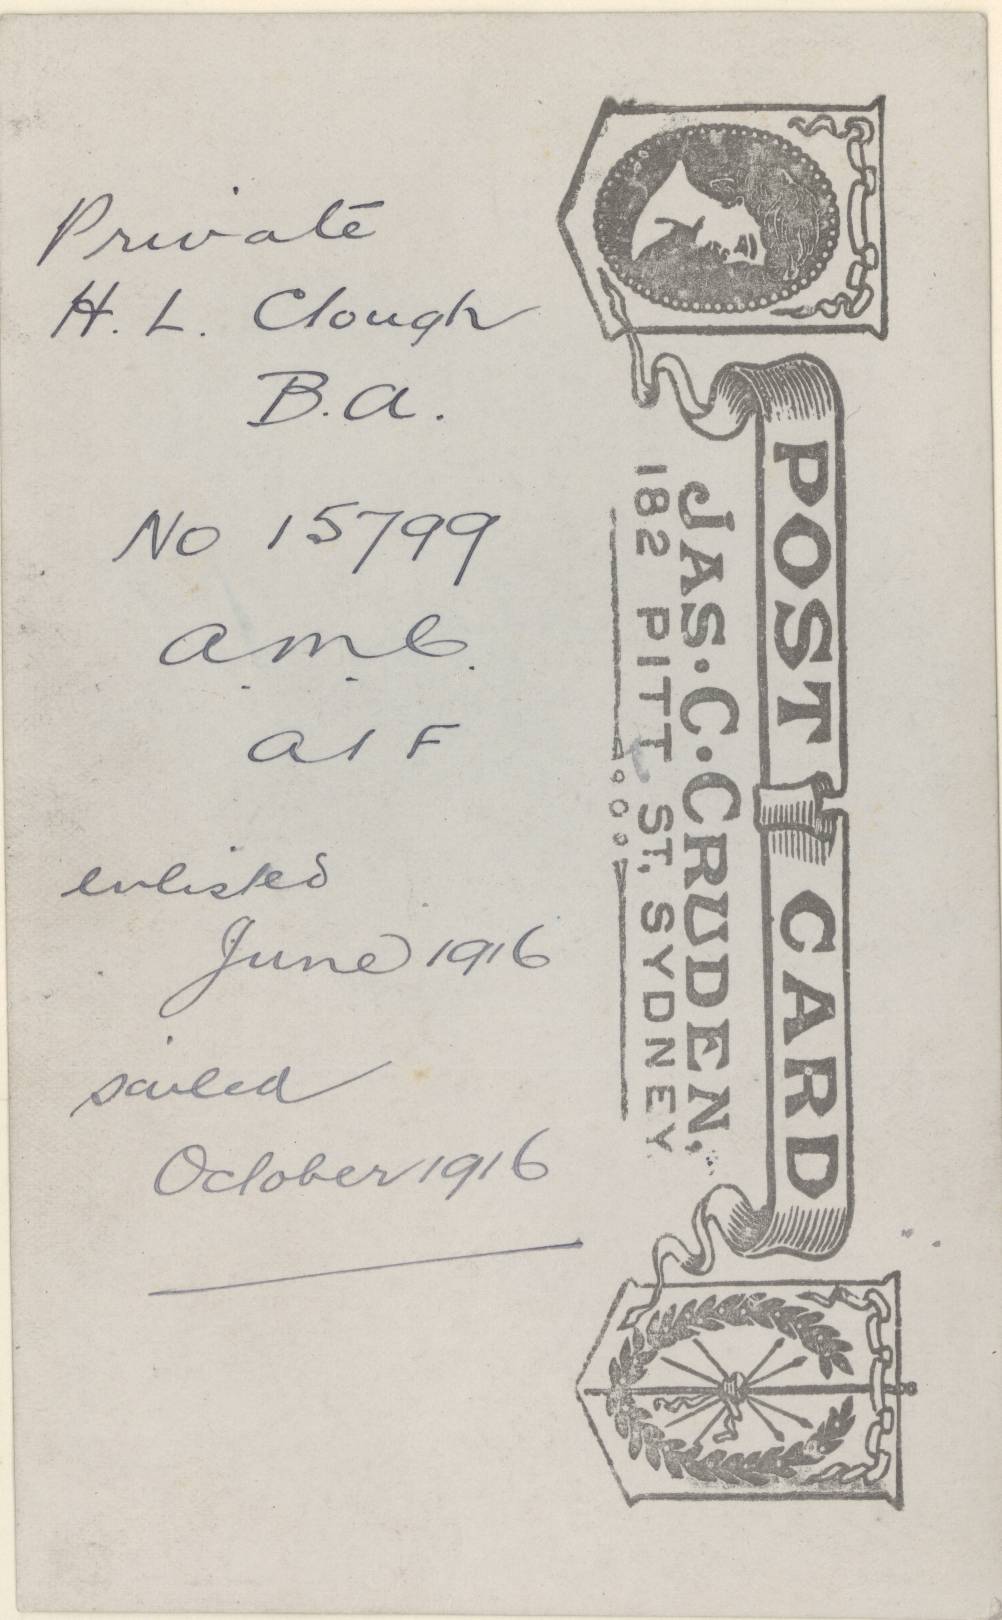 Private
H. L. Clough
B.A.
No 15799
A.M.C.
A I F
enlisted
June 1916
sailed
October 1916
POST CARD
JAS. C. CRUDEN,
182 PITT ST. SYDNEY